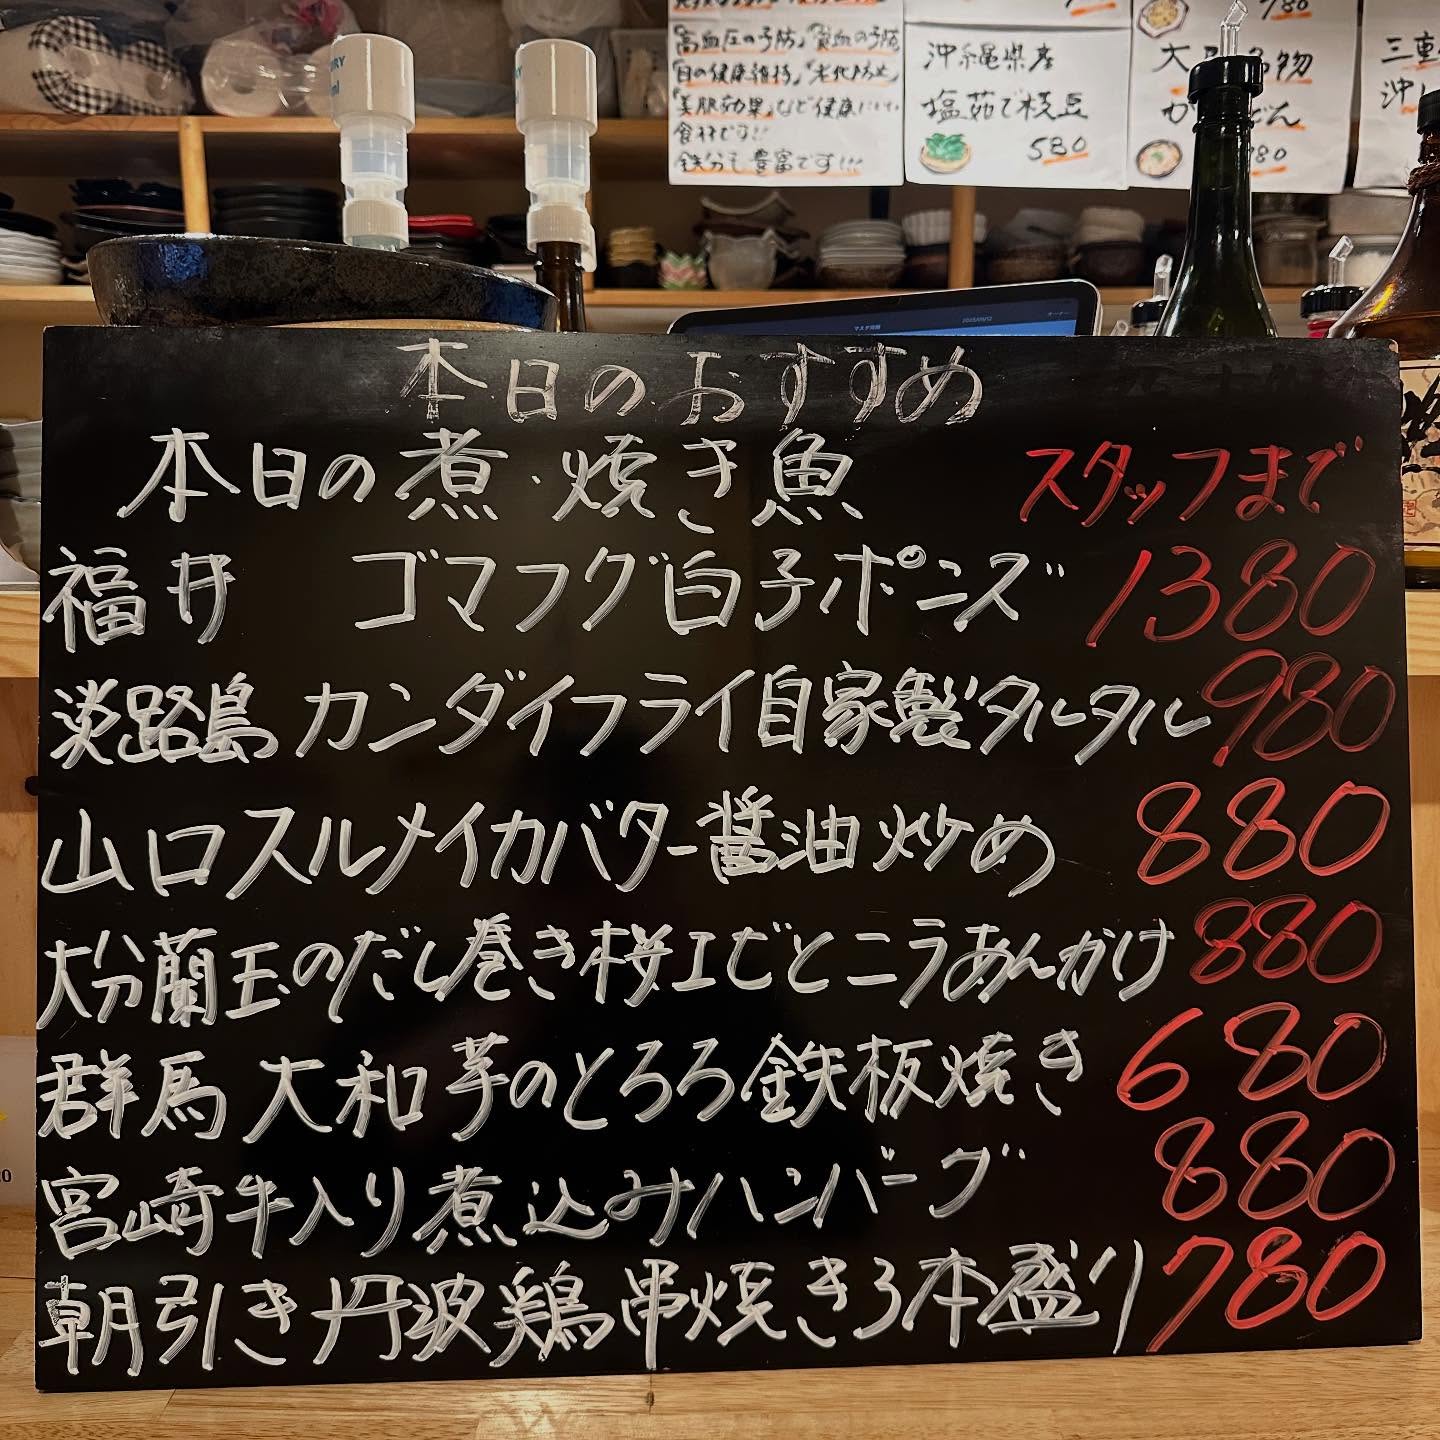 『高血圧の予防』『貧血の予防
『目の健康維持』『老化防止』
『美肌効果』など健康にいい
食材です!!
鉄分も豊富です!!!
沖縄県産
塩茹で枝豆
580
780
三重
本日のおすすめ
本日の煮・焼き魚 スタッフまで
福井 ゴマフグ白子ポンズ 1380
淡路島カンダイフライ自家製タルタル 980
山口スルメイカバター醤油炒め 880
大分蘭王のだし巻き桜エビとニラあんかけ 880
群馬大和芋のとろろ鉄板焼き 680
宮崎牛入り煮込みハンバーグ 880
朝引き丹波鶏串焼き3本盛り 780